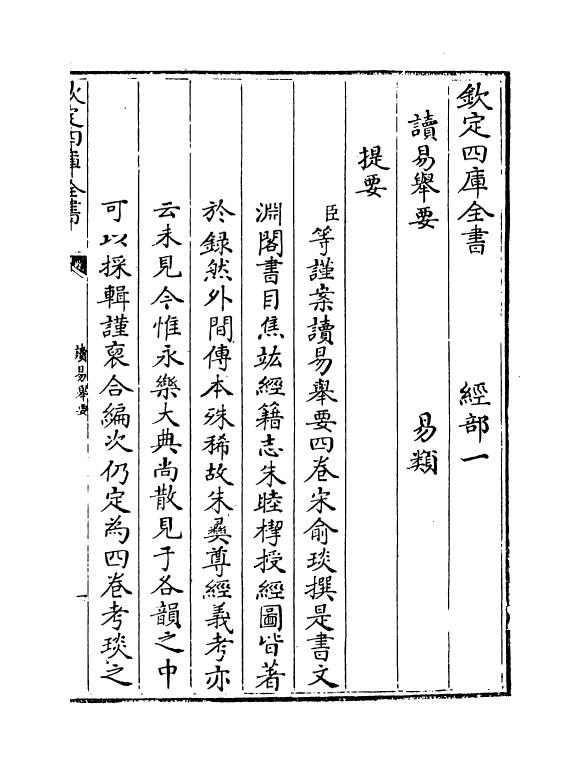 欽定四庫全書　經部一
讀易舉要　易類
提要
臣等謹案讀易舉要四卷宋俞琰撰是書文
淵閣書目焦竑經籍志朱睦㮮授經圖皆著
於錄然外間傳本殊稀故朱彞尊經義考亦
云未見今惟永樂大典尚散見于各韻之中
可以採輯謹裒合編次仍定為四卷考琰之
欽定四庫全書
讀易舉要
一